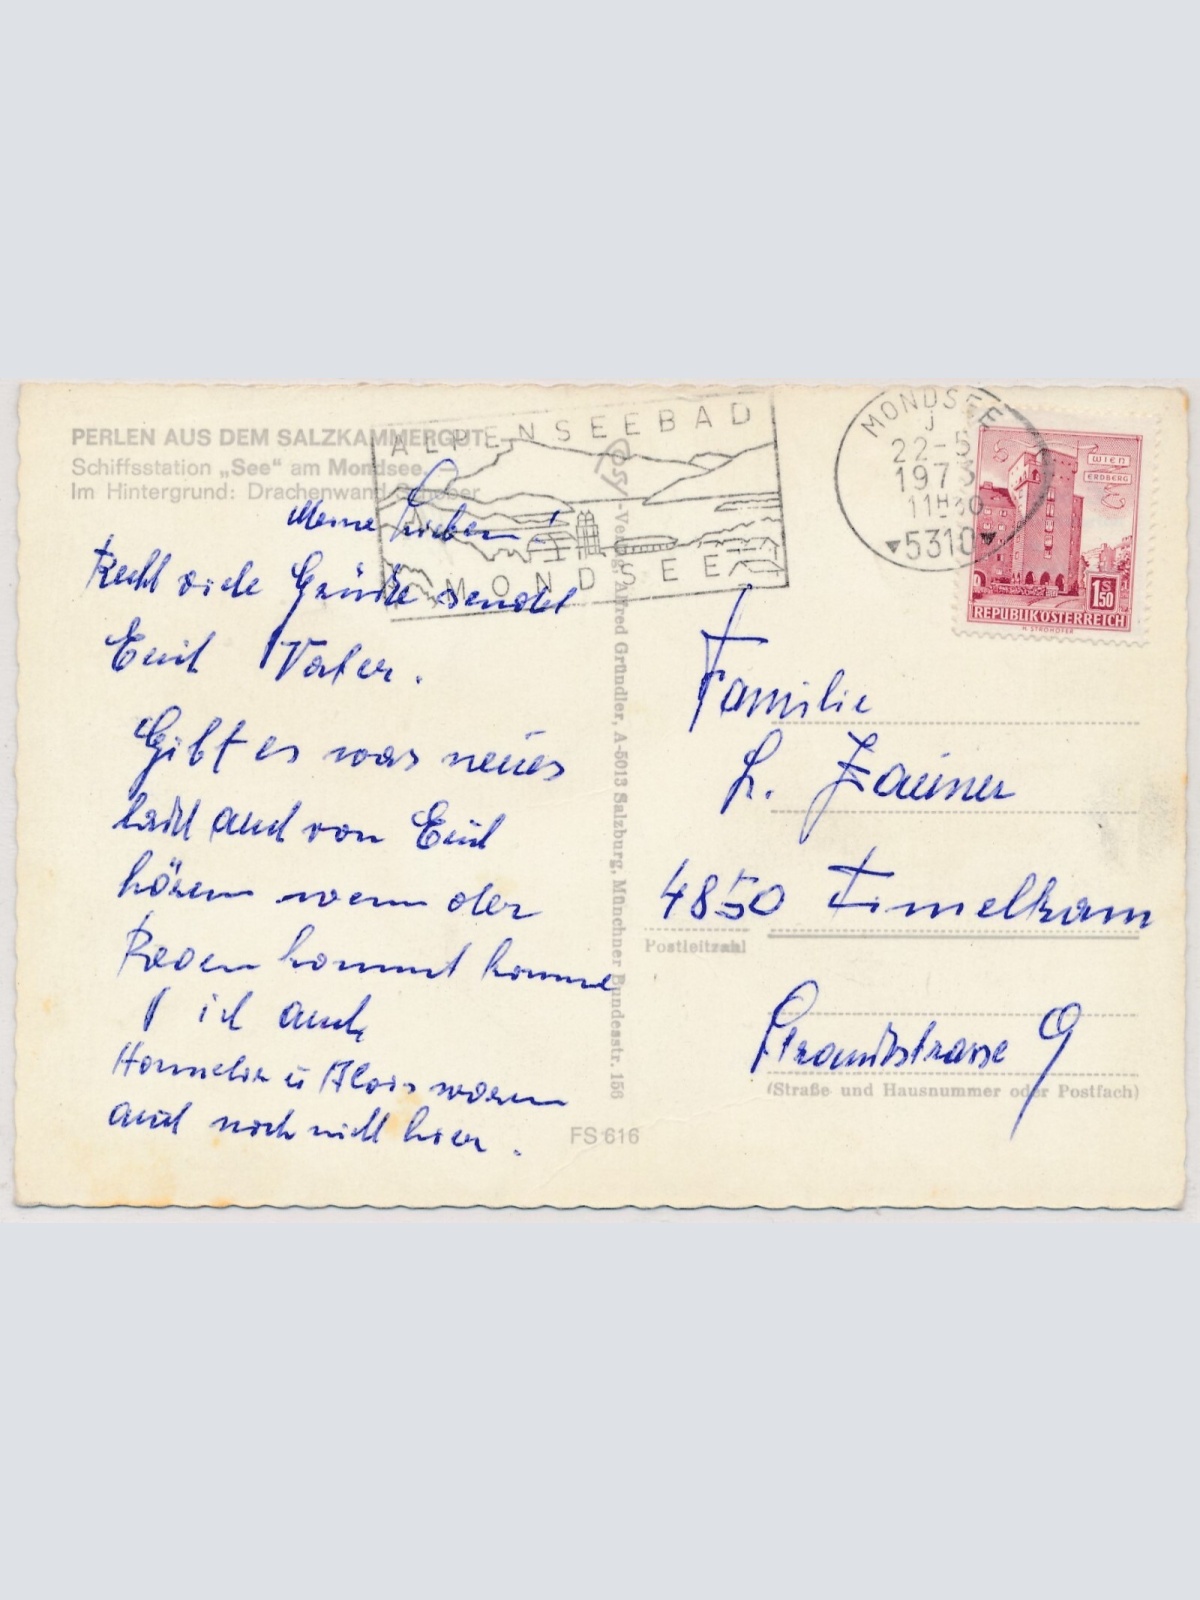 PERLEN AUS DEM SALZKAMMERGUT
Schiffsstation „See“ am Mondsee
Im Hintergrund: Drachenwand Schober
ALPENSEEBAD
MONDSEE
MONDSEE
J
22-5
1973
11H30
5310
WIEN
ERDBERG
1S50
REPUBLIK ÖSTERREICH
H. STROHOFER
Meine Lieben!
Recht viele Grüße sendet
Euch Vater.
Gibt es was neues
laßt auch von Euch
hören wenn der
Regen kommt komme
ich auch
Hannelore u Alois waren
auch noch nicht hier.
Cosy-Verlag Alfred Gründler, A-5013 Salzburg, Münchner Bundesstr. 156
Familie
L. Zauner
4850 Timelkam
Postleitzahl
9
(Straße und Hausnummer oder Postfach)
FS 616